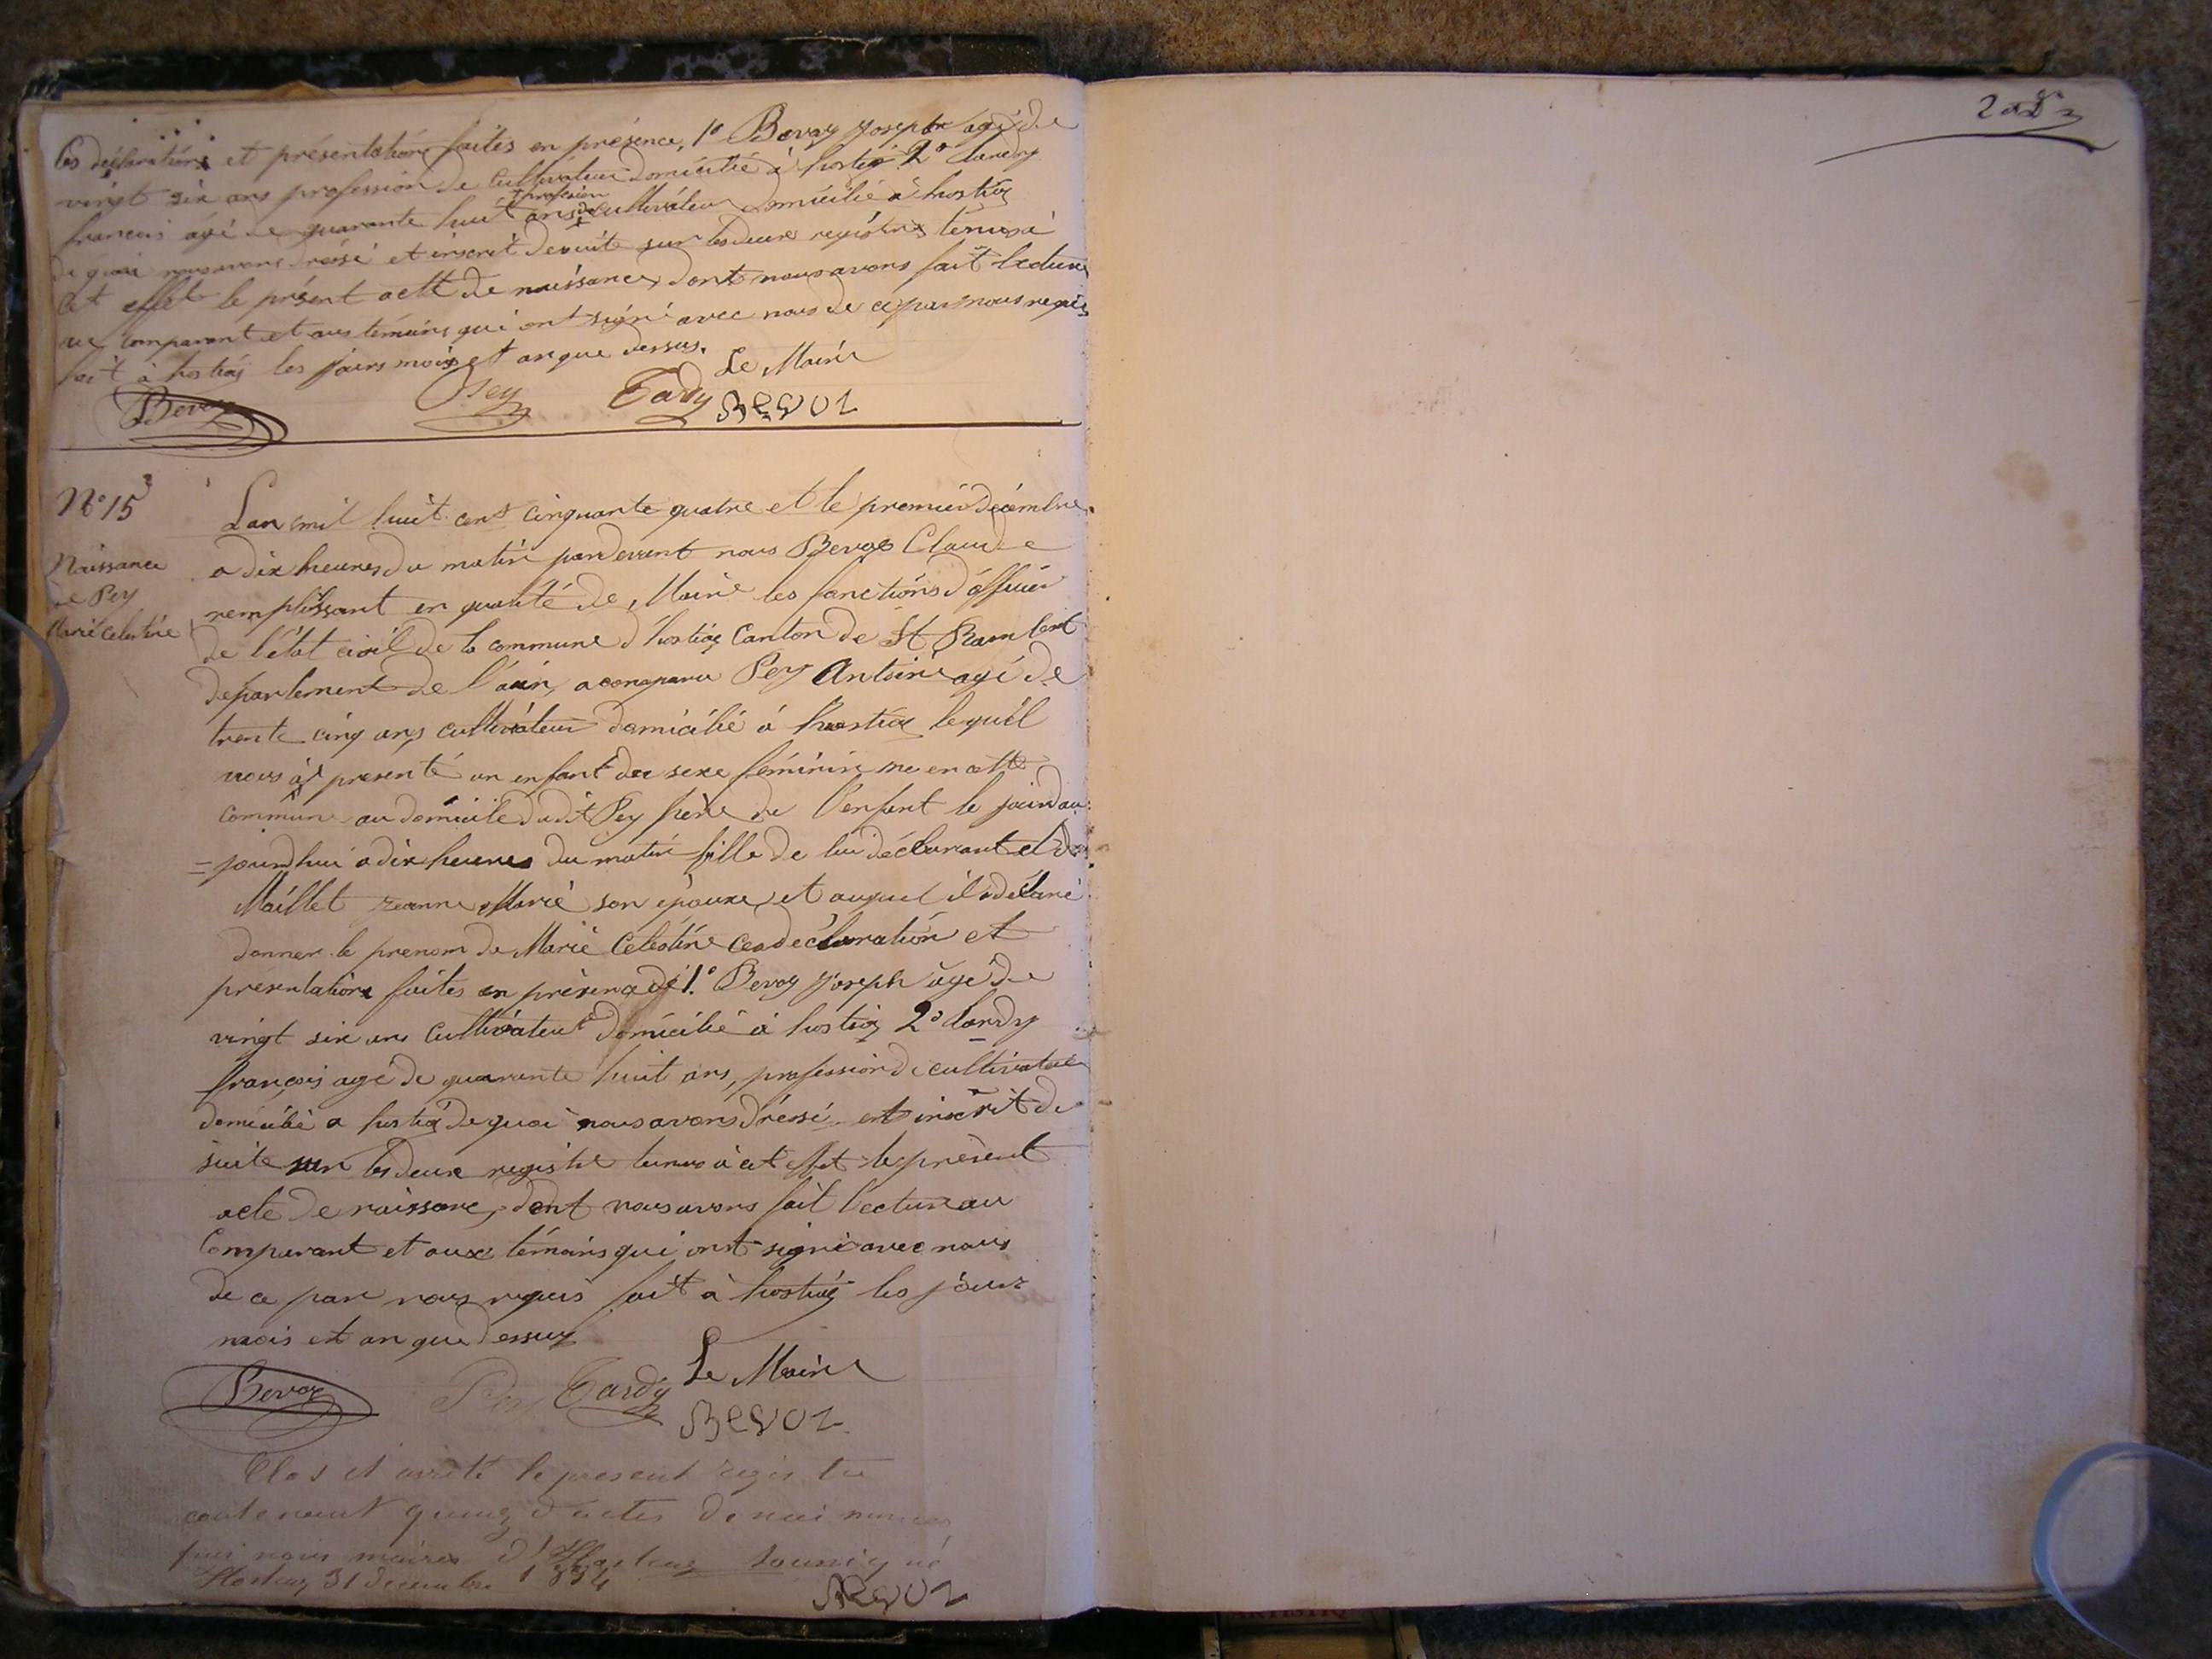 2
Ces déclarations et présentations faites en présence, 1o Bevoz Joseph agé de
vingt six ans profession de cultivateur domicilié à hostiaz 2o
françois agé de quarante huit ans profession de cultivateur domicilié à hostiaz
de quoi nous avons dréssé et inscrit de suite sur les deux registres ténus à
cet effet le présent actt de naissance, dont nous avons fait lecture
au comparant et aux témoins qui ont signé avec nous de ce par nous requis
fait à hostiaz les jours mois et an que dessus.
Le Maire
Bevoz Pey Tardy BEVOZ
No 15
Naissance
de Pey
Marie Celestine
Lan mil huit cent cinquante quatre et le premier décembre
a dix heures du matin pardevant nous Bevoz Claude
remplissant en qualité de Maire les fonctions d'officier
de l'état civil de la commune d'hostiaz Canton de St Rambert
département de l'ain, a comparu Pey Antoine agé de
trente cinq ans, cultivateur domicilié à hostiaz lequel
nous à presenté un enfant du sexe féminin né en cette
commune au domicile dudit Pey père de l'enfant le jour dau
=jourdhui a dix heures du matin fille de lui déclarant et de
Maillet Jeanne Marie son épouse, et auquel il a déclaré
donner le prenom de Marie Celestine ces déclaration et
présentations faites en présence de 1.o Bevoz Joseph âgé de
vingt six ans cultivateur domicilié à hostiaz 2o
françois agé de quarante huit ans, profession de cultivateur
domicilié a hostiaz de quoi nous avons dréssé et inscrit de
suite sur les deux registre tenus à cet effet le présent
acte de naissance, dont nous avons fait lecture au
Comparant et aux témoins qui ont signé avec nous
de ce par nous requis fait à hostiaz les jour
mois et an que dessus
Le Maire
Bevoz Pey Tardy BEVOZ
Clos et arreté le present registre
contenant quinze d'actes de naissances
par nous maire d'Hostiaz soussigné
Hostiaz 31 decembre 1854
BEVOZ